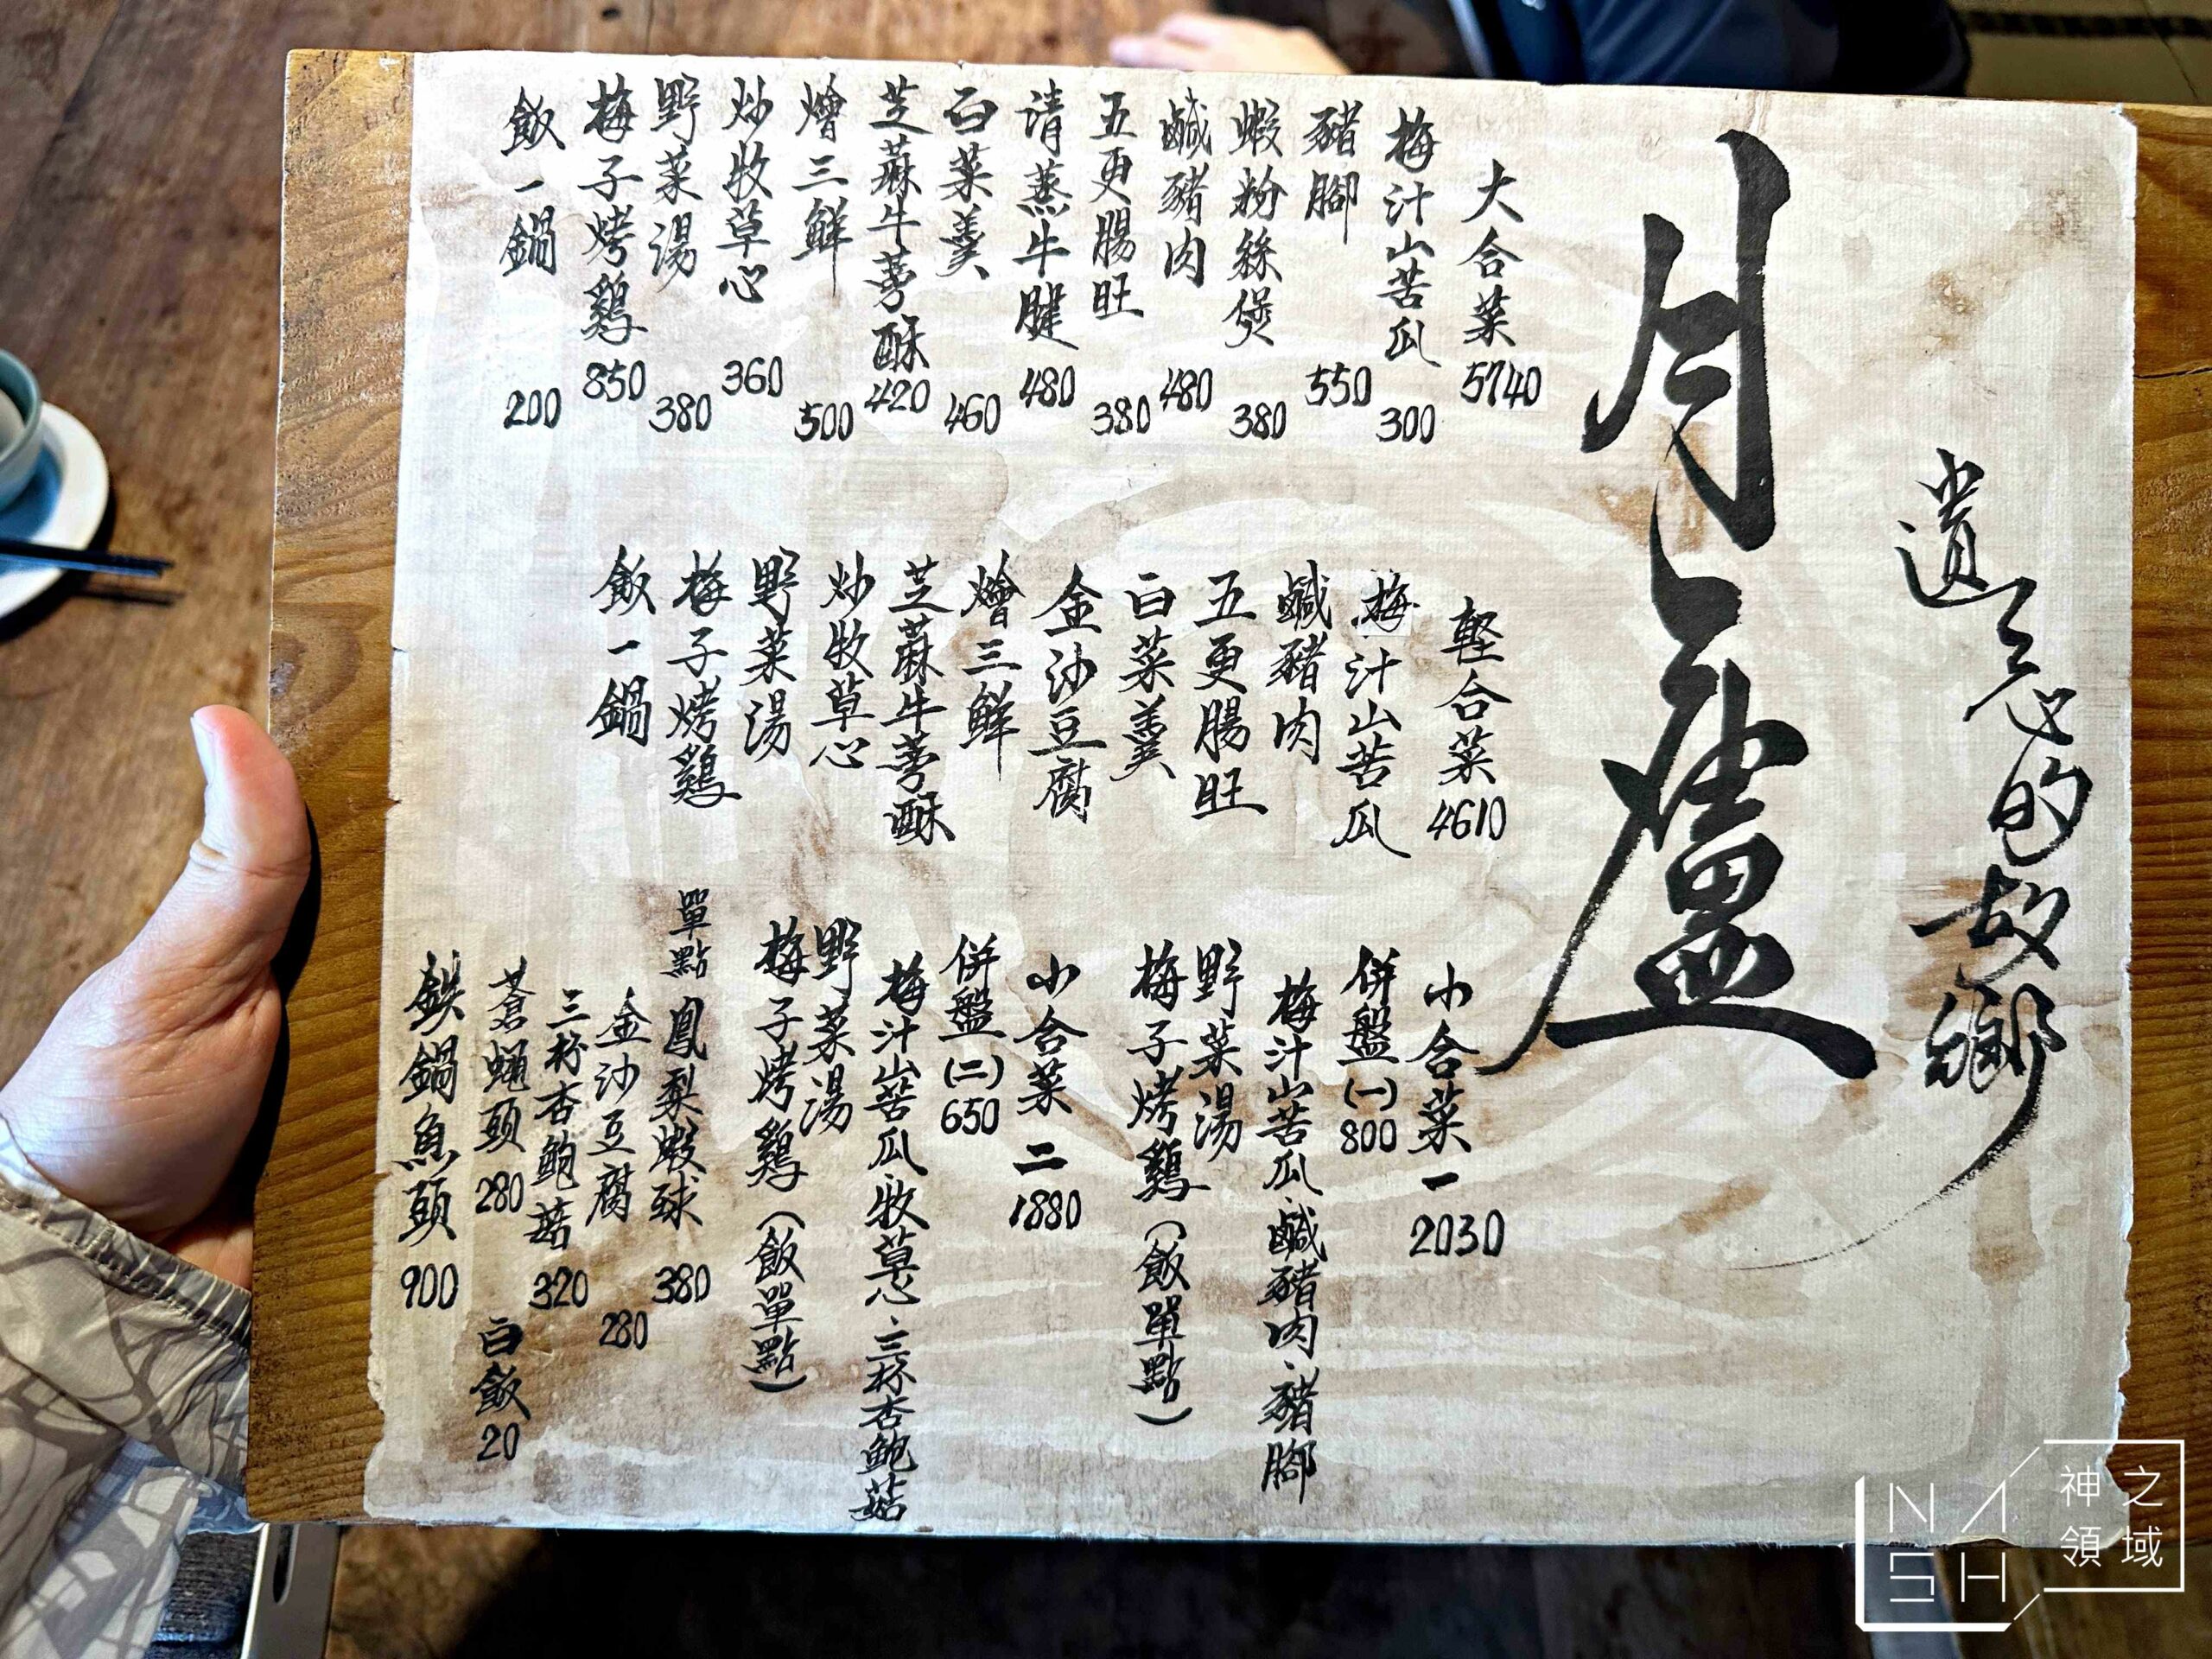 遺忘的故鄉
月廬
大合菜 5740
梅汁山苦瓜 300
豬腳 550
蝦粉絲煲 380
鹹豬肉 480
五更腸旺 380
請蒸牛腱 480
白菜羹 460
芝蔴牛蒡酥 420
燴三鮮 500
炒牧草心 360
野菜湯 380
梅子烤鷄 850
飯一鍋 200
輕合菜 4610
梅汁山苦瓜
鹹豬肉
五更腸旺
白菜羹
金沙豆腐
燴三鮮
芝蔴牛蒡酥
炒牧草心
野菜湯
梅子烤鷄
飯一鍋
小合菜一 2030
併盤(一) 800
梅汁山苦瓜、鹹豬肉、豬腳
野菜湯
梅子烤鷄(飯單點)
小合菜 二 1880
併盤(二) 650
梅汁山苦瓜、牧草心、三杯杏鮑菇
野菜湯
梅子烤鷄(飯單點)
單點
鳳梨蝦球 380
金沙豆腐 280
三杯杏鮑菇 320
蒼蠅頭 280
白飯 20
鉄鍋魚頭 900
NASH
神之領域